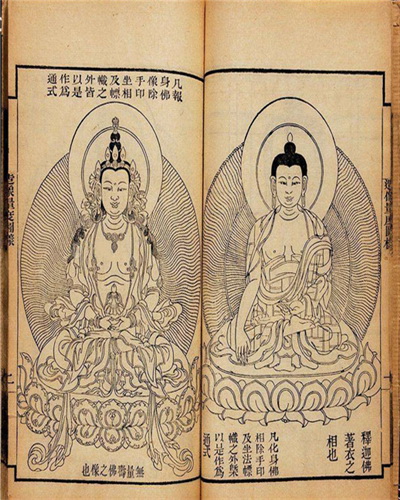 釋迦佛
著衣之
相也
凡化身佛
相除手印
及坐法幖
幟之外槩
以是作爲
通式
凡報
身佛
像除
手印
坐相
及幖
幟之
外皆
以是
作爲
通式
無量壽佛之像也